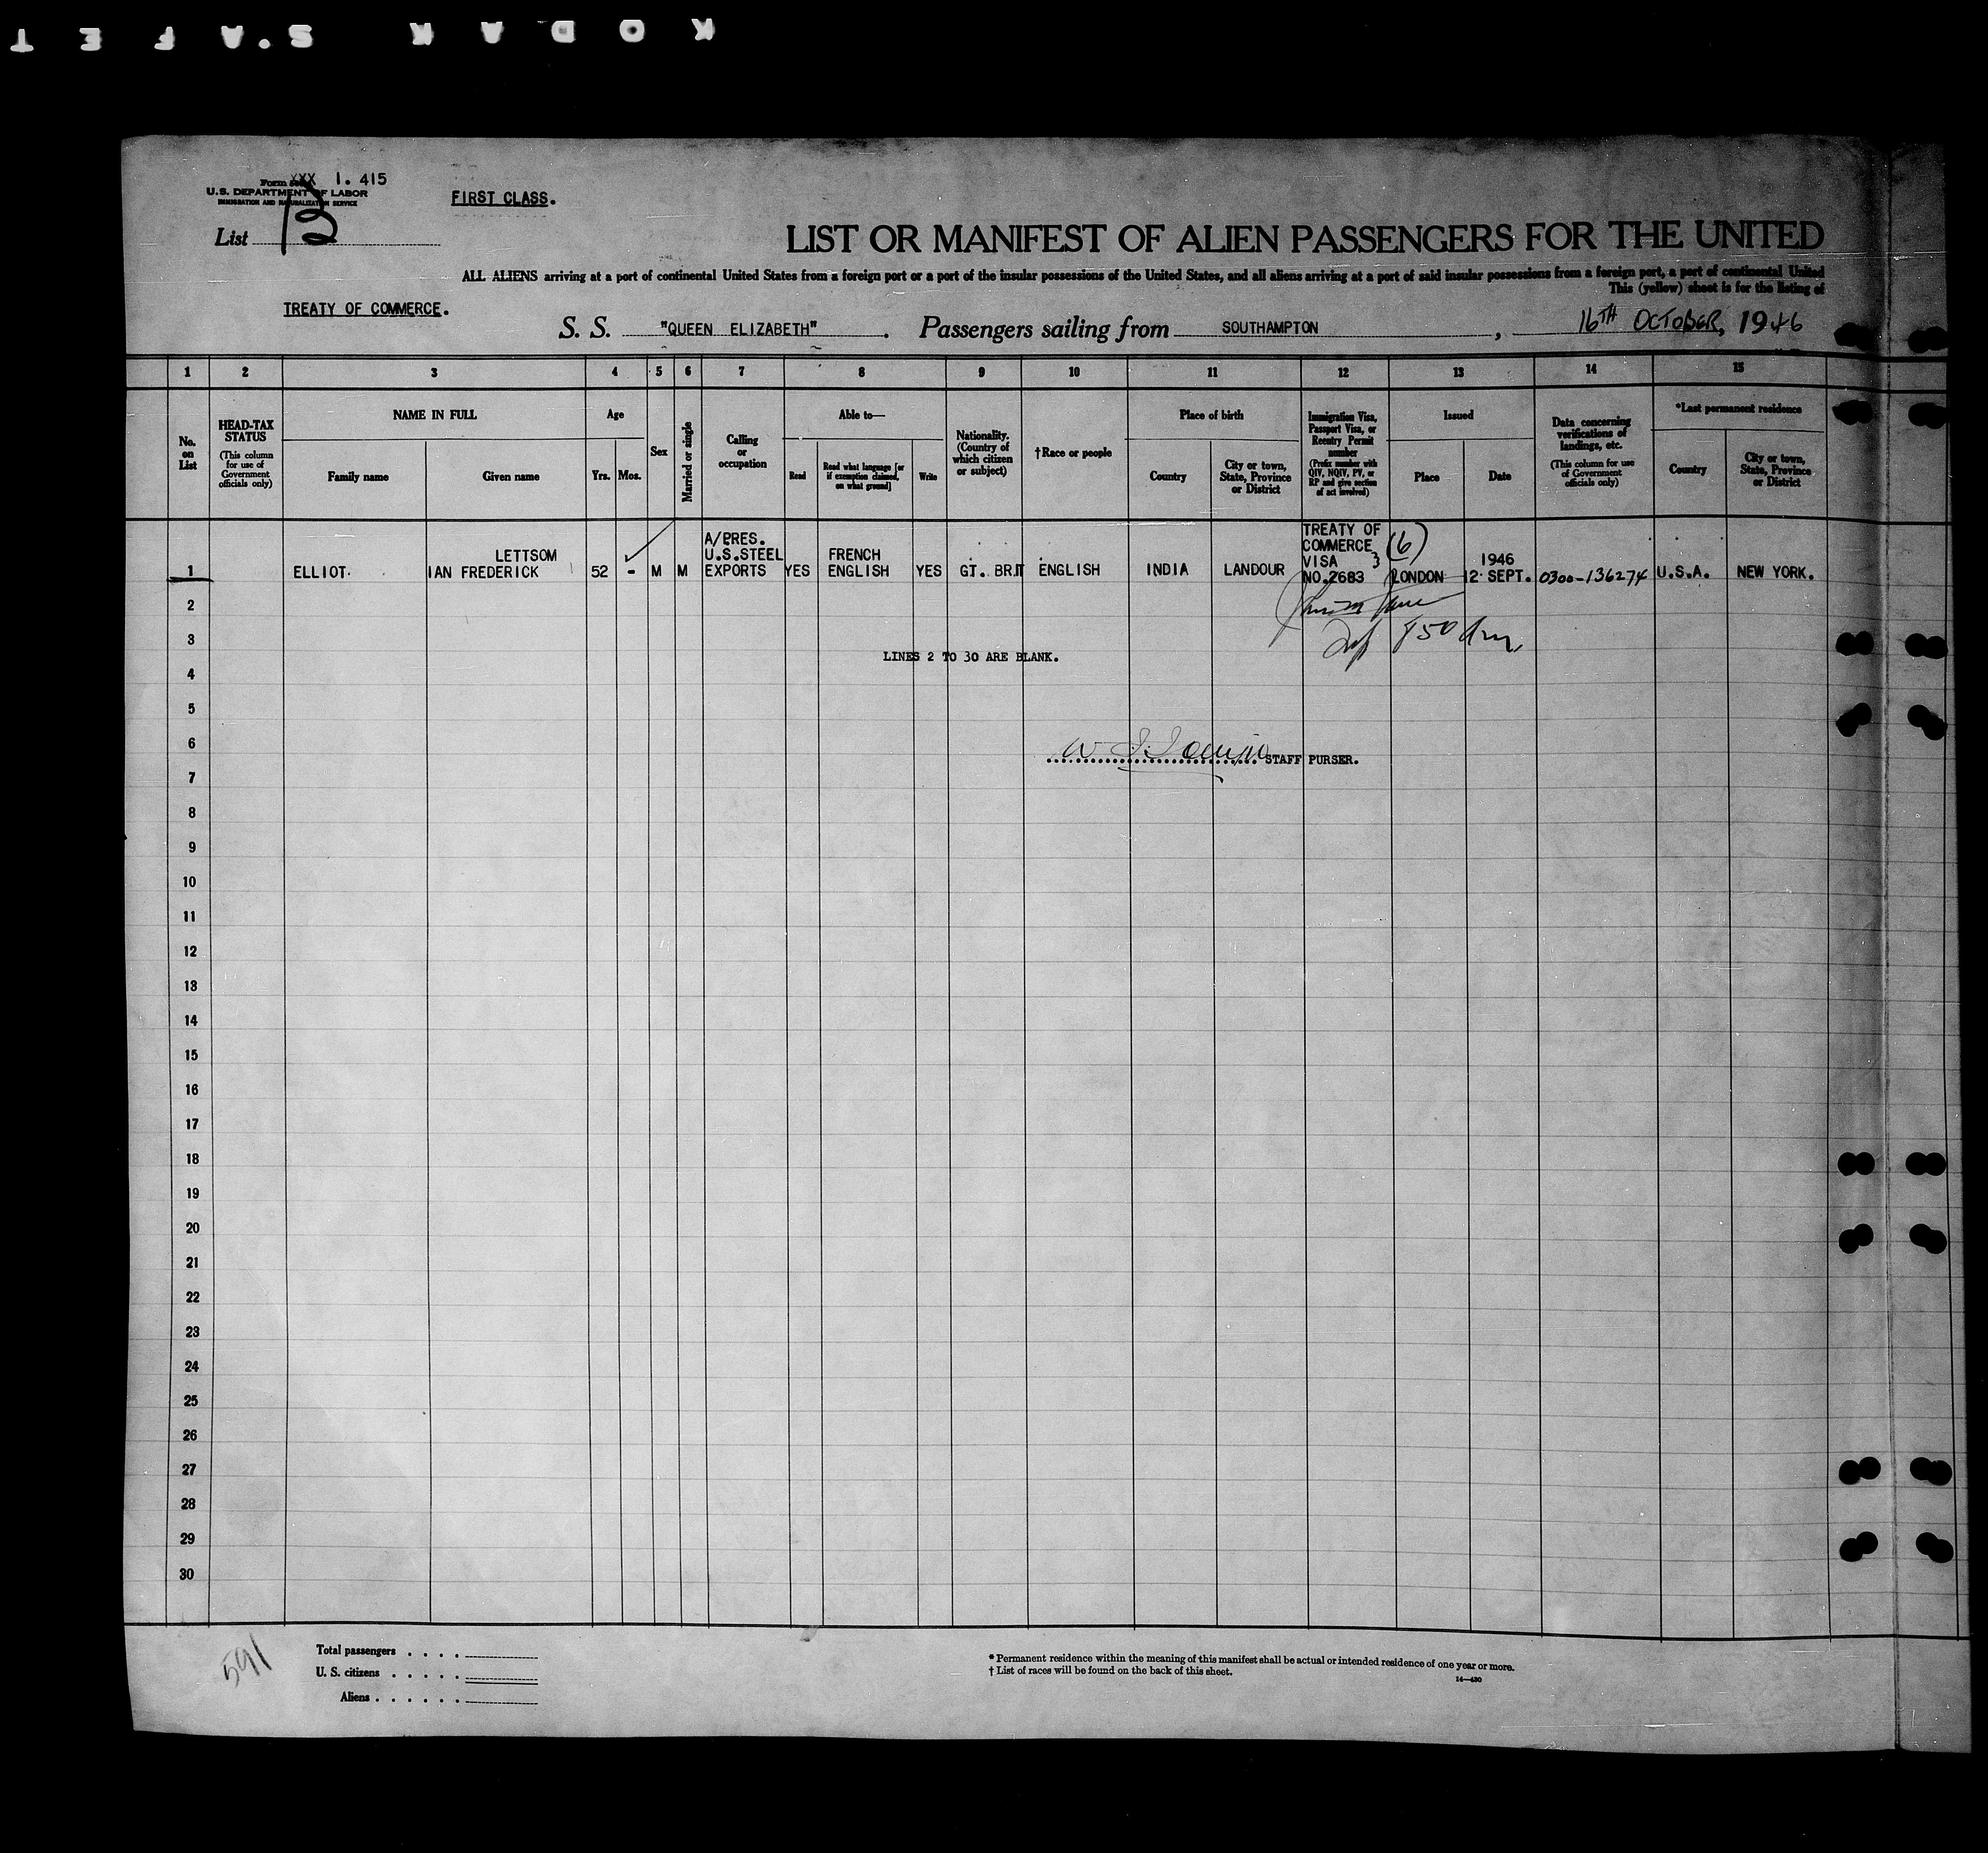 KODAK SAFET
Form XXX I. 415
U.S. DEPARTMENT OF LABOR
IMMIGRATION AND NATURALIZATION SERVICE
FIRST CLASS.
List 13
LIST OR MANIFEST OF ALIEN PASSENGERS FOR THE UNITED
ALL ALIENS arriving at a port of continental United States from a foreign port or a port of the insular possessions of the United States, and all aliens arriving at a port of said insular possessions from a foreign port, a port of continental United
This (yellow) sheet is for the listing of
TREATY OF COMMERCE.
S. S. "QUEEN ELIZABETH". Passengers sailing from SOUTHAMPTON, 16TH OCTOBER, 1946
1 2 3 4 5 6 7 8 9 10 11 12 13 14 15
No. on List
HEAD-TAX STATUS
(This column for use of Government officials only)
NAME IN FULL
Family name Given name
Age
Yrs. Mos.
Sex
Married or single
Calling or occupation
Able to—
Read Read what language [or if exemption claimed, on what ground] Write
Nationality. (Country of which citizen or subject)
†Race or people
Place of birth
Country City or town, State, Province or District
Immigration Visa, Passport Visa, or Reentry Permit number
(Prefix number with QIV, NQIV, PV, or RP and give section of act involved)
Issued
Place Date
Data concerning verifications of landings, etc.
(This column for use of Government officials only)
*Last permanent residence
Country City or town, State, Province or District
1 ELLIOT. LETTSOM IAN FREDERICK 52 - M M A/PRES. U.S.STEEL EXPORTS YES FRENCH ENGLISH YES GT. BRIT ENGLISH INDIA LANDOUR TREATY OF COMMERCE VISA 3 NO.2683 (6) LONDON 1946 12 SEPT. 0300-136274 U.S.A. NEW YORK.
2
3
850
LINES 2 TO 30 ARE BLANK.
4
5
6
STAFF PURSER.
7
8
9
10
11
12
13
14
15
16
17
18
19
20
21
22
23
24
25
26
27
28
29
30
591
Total passengers . . . .
U. S. citizens . . . . .
Aliens . . . . . .
* Permanent residence within the meaning of this manifest shall be actual or intended residence of one year or more.
† List of races will be found on the back of this sheet.
14—430